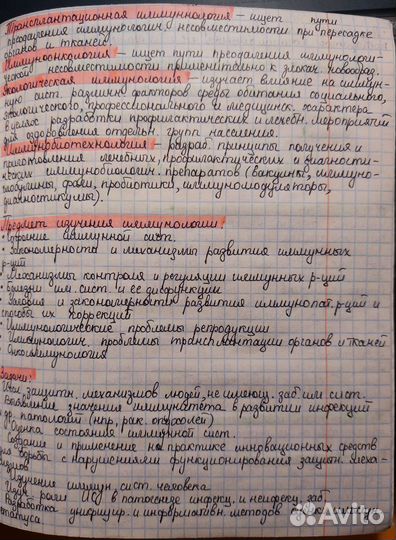 Трансплантационная иммунология – ищет пути
преодоления иммунологич. несовместимости при пересадке
органов и тканей.
Иммуноонкология – ищет пути преодоления иммунологи-
ческой несовместимости применительно к злокач. новообраз.
Экологическая иммунология – изучает влияние на иммун-
ную сист. различн. факторов среды обитания социального,
экологического, профессионального и медицинск. характера
в целях разработки профилактических и лечебн. мероприятий
для оздоровления отдельн. групп населения.
Иммунобиотехнология – разраб. принципы получения и
приготовления лечебных, профилактических и диагности-
ческих иммунобиологич. препаратов (вакцины, иммуно-
глобулины, фаги, пробиотики, иммуномодуляторы,
диагностикумы).
Предмет изучения иммунологии:
• Строение иммунной сист.
• Закономерности и механизмы развития иммунных
р-ций
• Механизмы контроля и регуляции иммунных р-ций
• Болезни имм. сист. и ее дисфункции
• Условия и закономерности развития иммунопат. р-ций и
способы их коррекции
• Иммунологические проблемы репродукции
• Иммунологич. проблемы трансплантации органов и тканей
• Онкоиммунология
Задачи:
Изуч. защитн. механизмов людей, не имеющ. заб. имм. сист.
Выявление значения иммунитета в развитии инфекций
др. патологий (нпр, рак. опухолей)
Оценка состояния иммунной сист.
Создание и применение на практике инновационных средств
для борьбы с нарушениями функционирования защитн. меха-
низмов
Изучение иммун. сист. человека
Изуч. роли ИС в патогенезе инфекц. и неинфекц. заб.
Разработка унифицир. и информативн. методов
статуса.
Avito